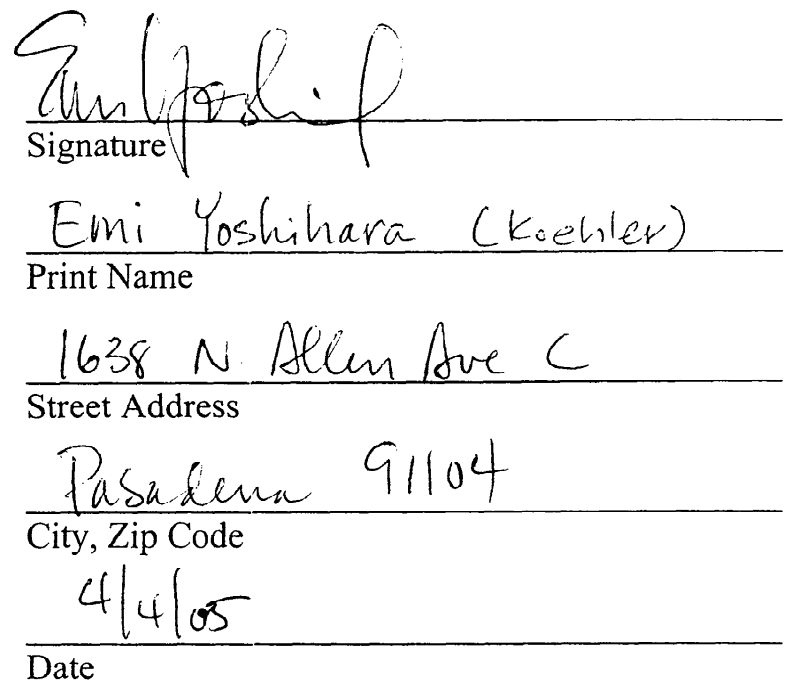 Emi Yoshi
Signature
Emi Yoshihara (Koehler)
Print Name
1638 N. Allen Ave C
Street Address
Pasadena 91104
City, Zip Code
4/4/05
Date